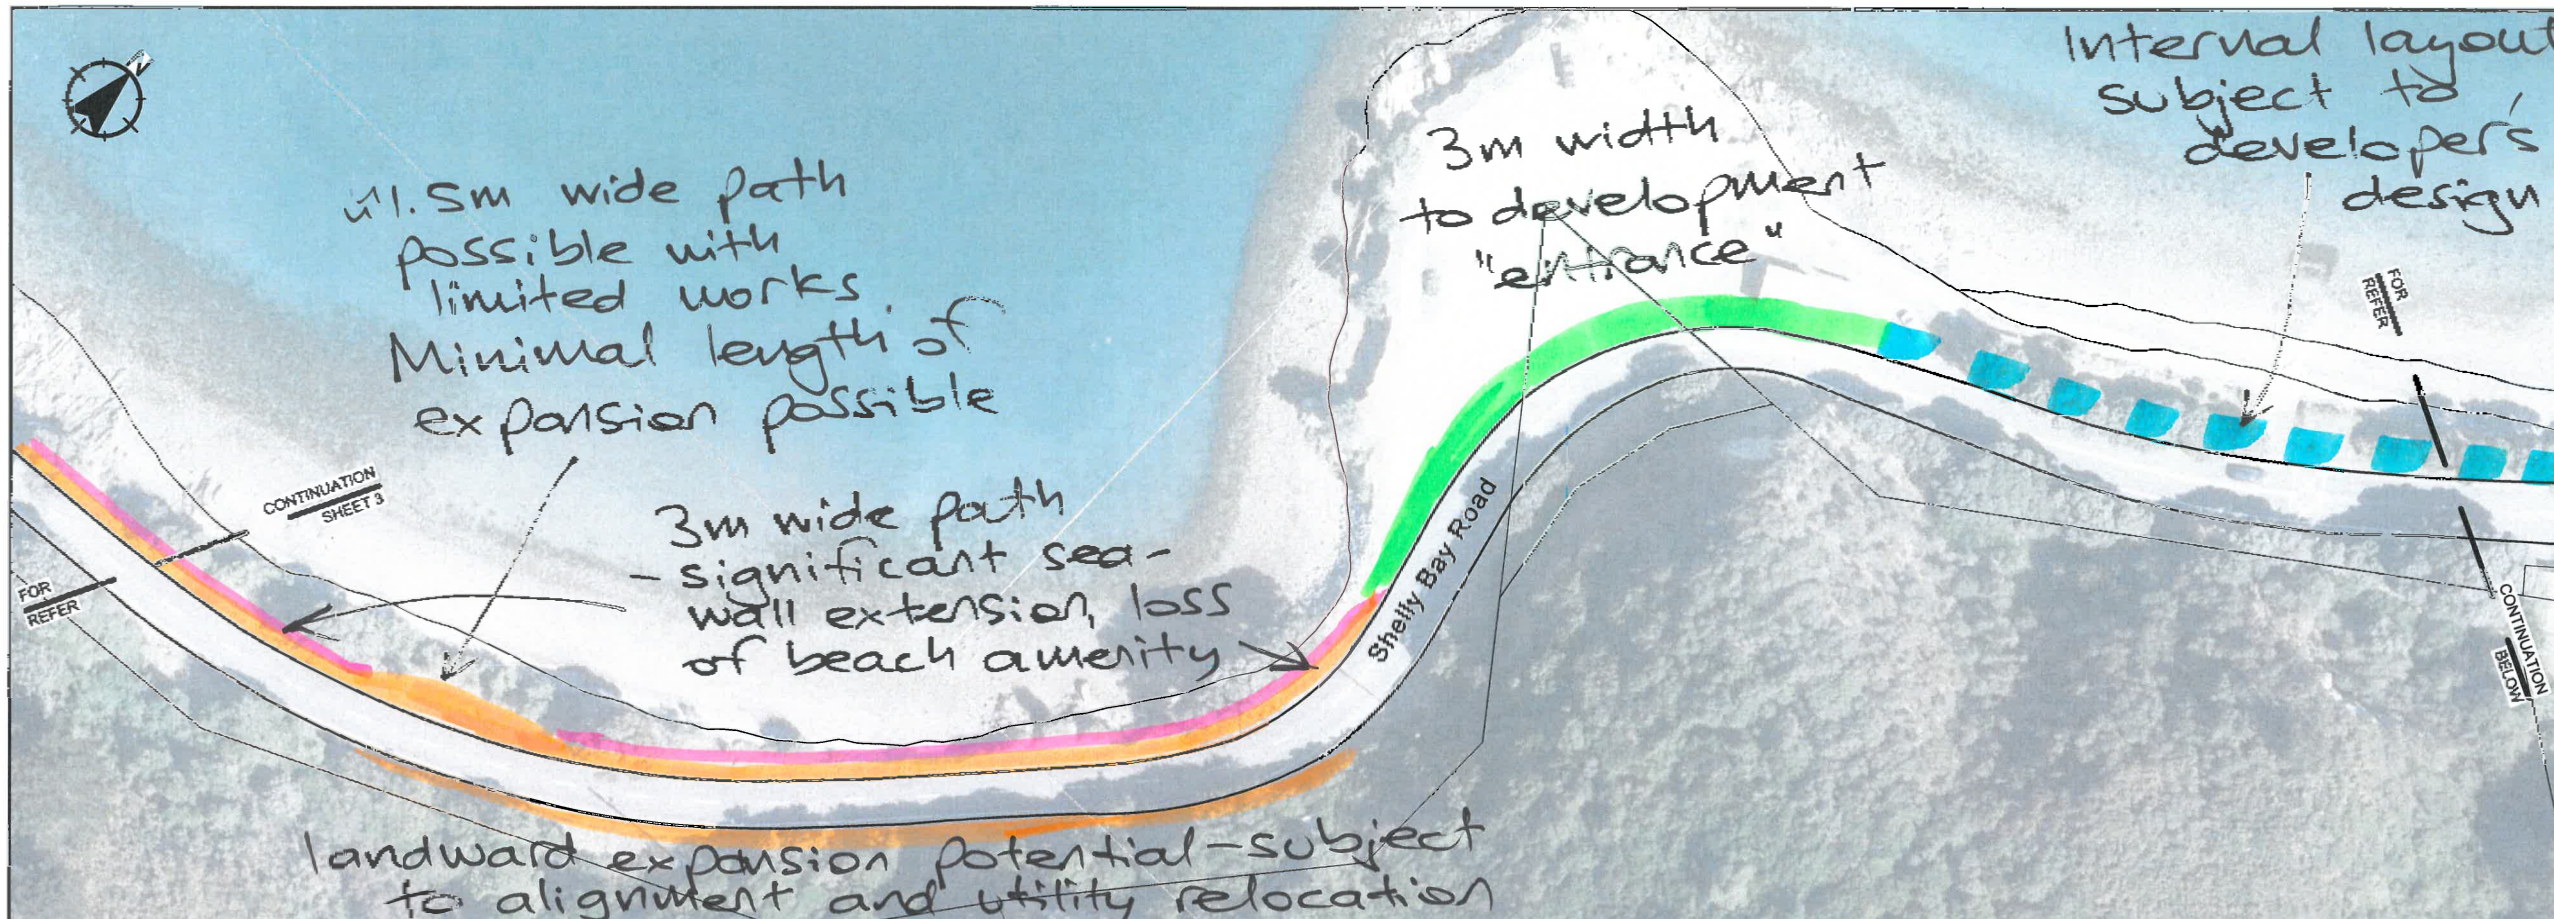 N
1.5m wide path
possible with
limited works.
Minimal length of
expansion possible
3m width
to development
"entrance"
Internal layout
subject to
developer's
design
FOR
REFER
CONTINUATION
SHEET 3
3m wide path
- significant sea-
wall extension, loss
of beach amenity
Shelly Bay Road
FOR
REFER
CONTINUATION
BELOW
landward expansion potential - subject
to alignment and utility relocation